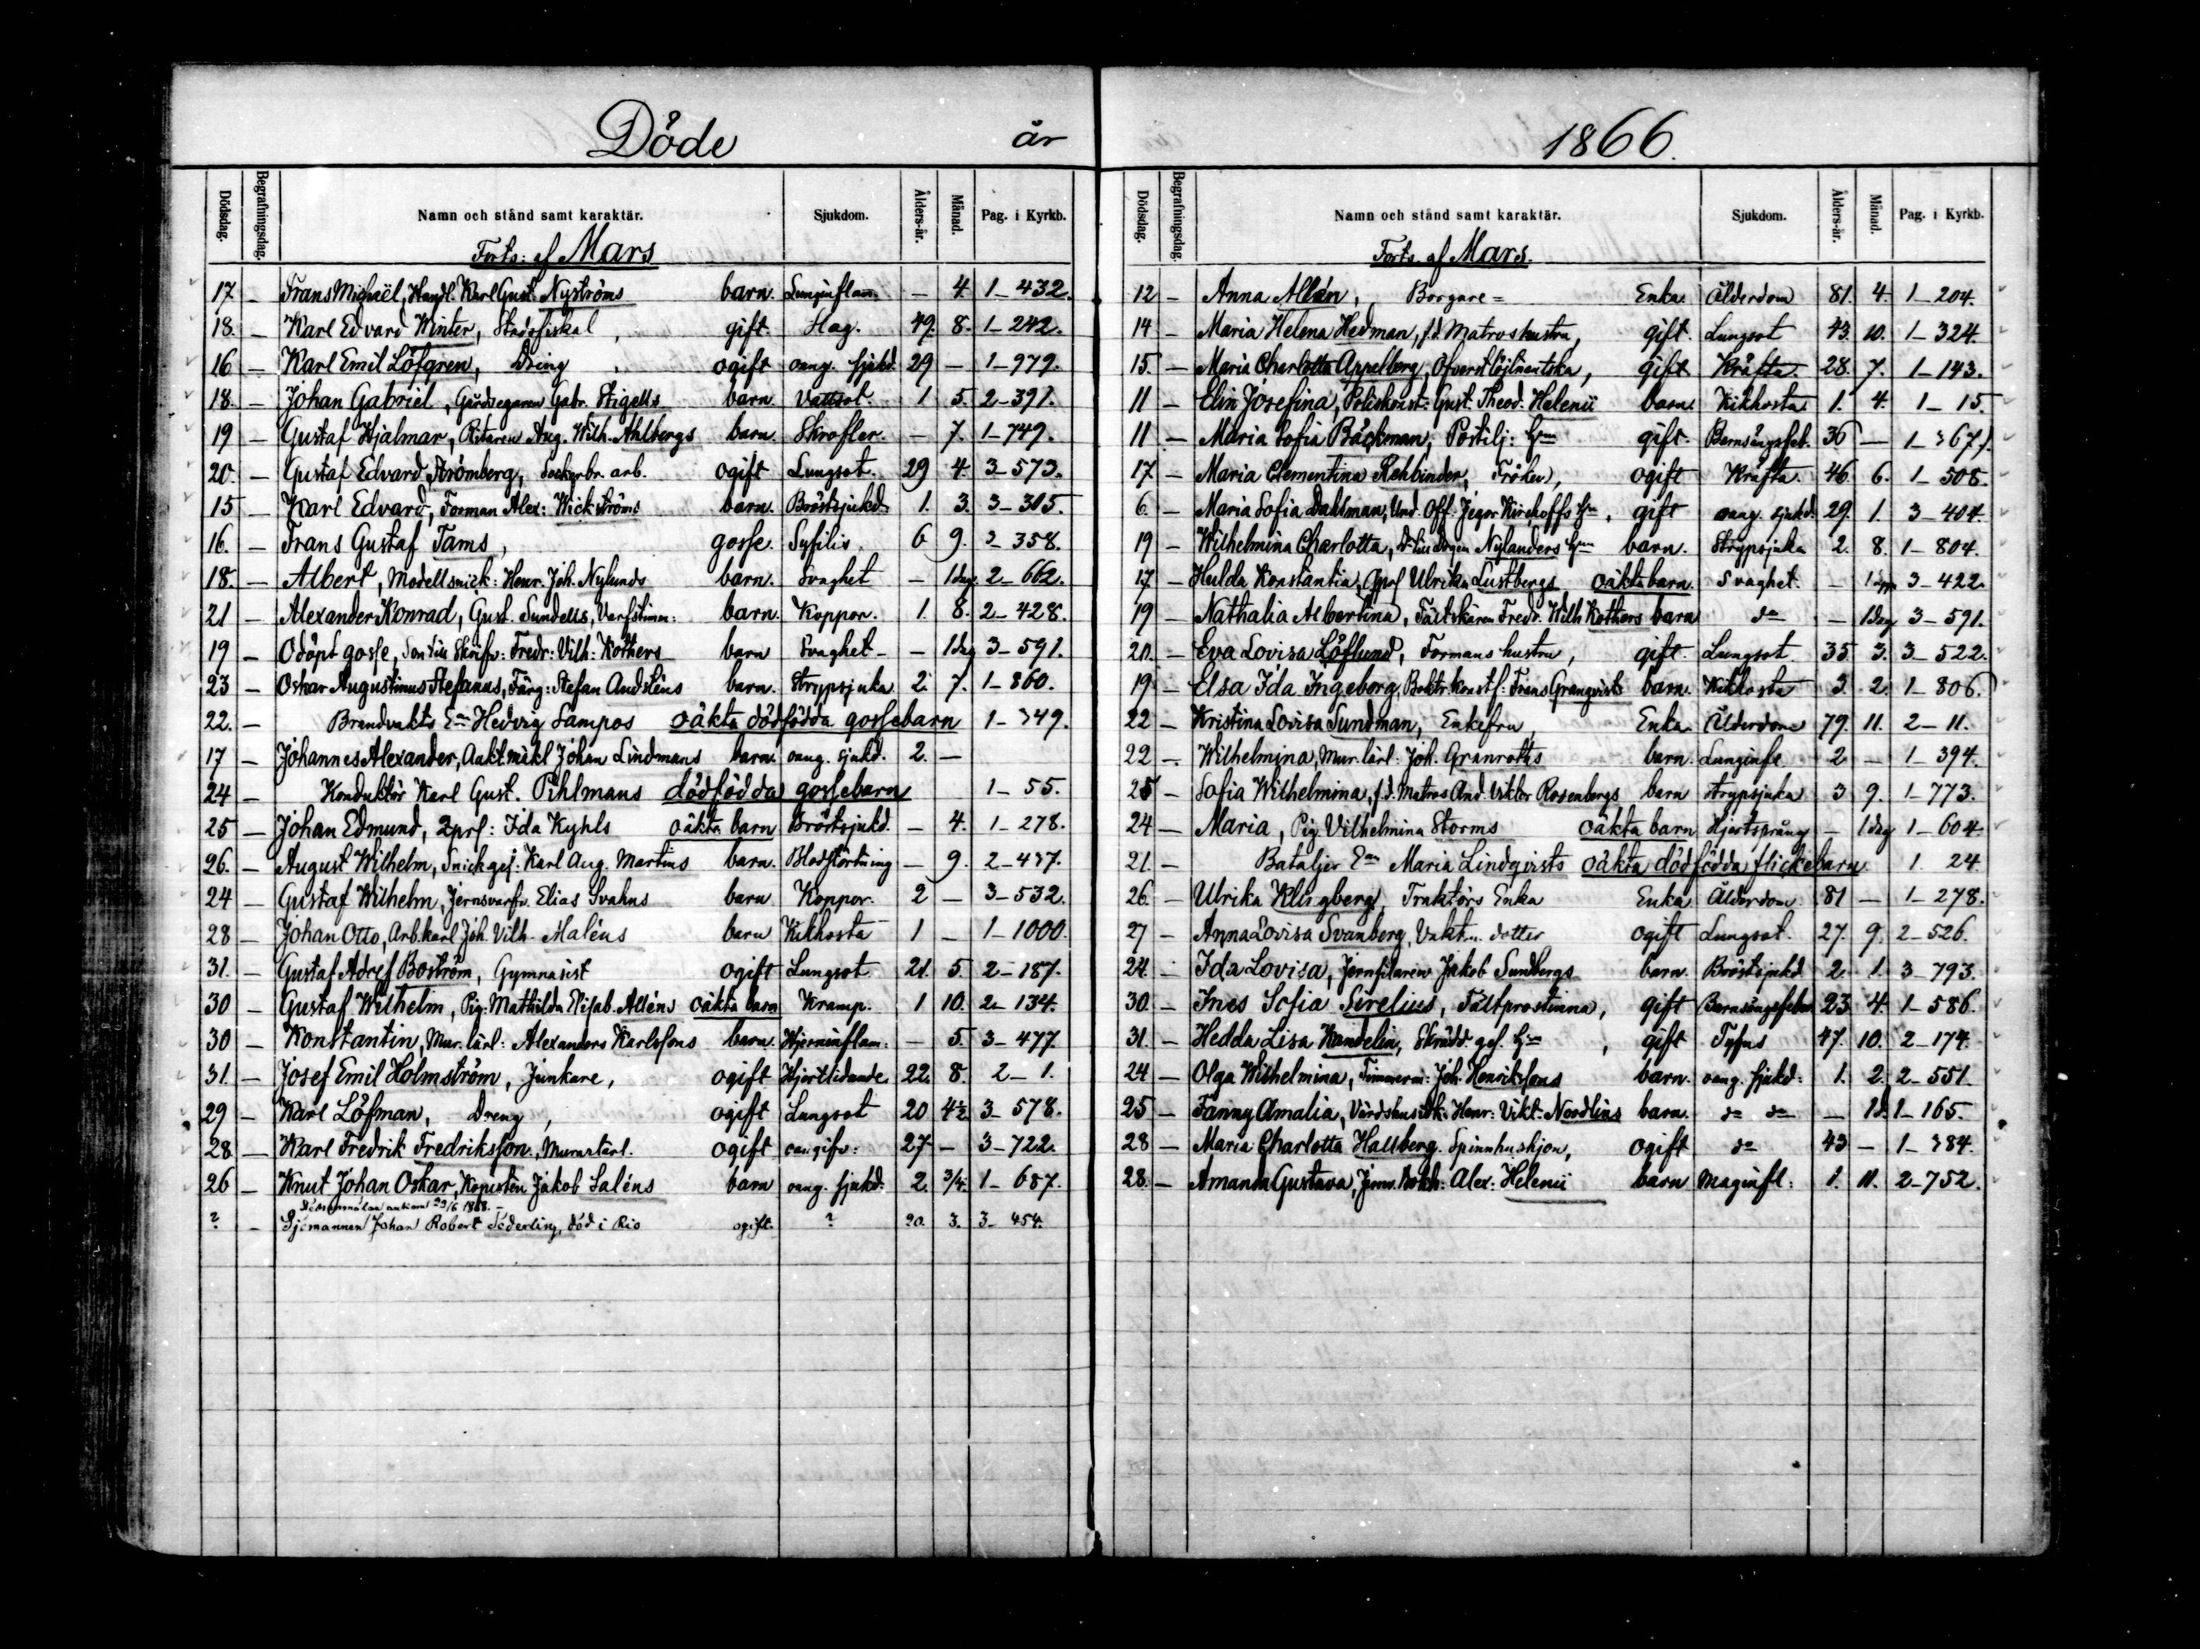 Döde år 1866.
Dödsdag. Begrafningsdag. Namn och stånd samt karaktär. Sjukdom. Ålders-år. Månad. Pag. i Kyrkb.
Forts: af Mars
17. — Frans Michaël, Handl. Karl Gust. Nyströms barn. Lunginflam. — 4. 1—432.
18. — Karl Edvard Winter, Stadsfiskal, gift. Slag. 49. 8. 1—242.
16 — Karl Emil Löfgren, Dräng, ogift oang. sjukd. 29 — 1—979.
18. — Johan Gabriel, Gårdsegaren Gabr. Stigells barn. Vattsot. 1. 5. 2—391.
19 — Gustaf Hjalmar, Ritaren Aug. Wilh. Ahlbergs barn. Skrofler. — 7. 1—749.
20. — Gustaf Edvard Strömberg, sockerbr. arb. ogift Lungsot. 29 4. 3—573.
15 — Karl Edvard, Forman Alex: Wickströms barn. Bröstsjukd. 1. 3. 3—305.
16. — Frans Gustaf Tams, gosse. Syfilis 6 9. 2—358.
18. — Albert, Modellsnick: Henr. Joh. Nylunds barn. Svaghet — 1 dag 2—662.
21 — Alexander Konrad, Gust. Sundells, Varfstimm: barn. Koppor. 1. 8. 2—428.
19 — Odöpt gosse, Son till Skrifv: Fredr: Vilh: Köthers barn Svaghet — — 1 dag 3—591.
23 — Oskar Augustinus Stefanus, Färg: Stefan Andsténs barn. Strypsjuka 2. 7. 1—860.
22. — Brandvakts Enka Hedvig Sampos oäkta dödfödda gossebarn 1—349.
17 — Johannes Alexander, Aukt. mäkl Johan Lindmans barn. oang. sjukd. 2. —
24 — Konduktör Karl Gust. Pihlmans dödfödda gossebarn 1—55.
25 — Johan Edmund, Ida Kyhls oäkta barn Bröstsjukd. — 4. 1—278.
26. — August Wilhelm, Snickges: Karl Aug. Martins barn. Blodstörtning — 9. 2—437.
24 — Gustaf Wilhelm, Jernsvarfv. Elias Svahns barn Koppor. 2 — 3—532.
28 — Johan Otto, Arb.karl Joh. Vilh. Maléns barn Kikhosta 1 — 1—1000.
31. — Gustaf Adolf Boström, Gymnasist ogift Lungsot 21. 5. 2—187.
30 — Gustaf Wilhelm, Pig. Mathilda Elisab. Alléns oäkta barn Kramp. 1 10. 2—134.
30 — Konstantin, Mur. lärl: Alexanders Karlssons barn. Hjerninflam: — 5. 3—477.
31. — Josef Emil Holmström, Junkare, ogift Hjertlidande. 22. 8. 2—1.
29 — Karl Löfman, Dreng, ogift Lungsot 20 4½ 3—578.
28 — Karl Fredrik Fredriksson, Murarelärl. ogift oangifv: 27 — 3—722.
26 — Knut Johan Oskar, Kopisten Jakob Saléns barn oang. sjukd. 2. 3/4. 1—687.
Dödsanmälan ankom 29/6 1868. —
? — Sjömannen Johan Robert Söderling, död i Rio ogift. ? 20. 3. 3—454.
Dödsdag. Begrafningsdag. Namn och stånd samt karaktär. Sjukdom. Ålders-år. Månad. Pag. i Kyrkb.
Forts. af Mars.
12 — Anna Allén, Borgare= Enka. Ålderdom 81. 4. 1—204.
14 — Maria Helena Hedman, f.d. Matroshustru, gift. Lungsot 43. 10. 1—324.
15. — Maria Charlotta Appelberg, Öfverstlöjtnentska, gift Kräfta 28. 7. 1—143.
11 — Elin Josefina, Poliskonst: Gust. Theod. Helenii barn. Kikhosta 1. 4. 1—15.
11 — Maria Sofia Bäckman, Postilj: Hu gift. Barnsängsfeb. 36 — 1—367.
17. — Maria Clementina Rehbinder, Fröken, ogift Kräfta 46. 6. 1—508.
6. — Maria Sofia Dahlman, Und. Off. Jegor Kirchoffs Hu, gift oang. sjukd. 29. 1. 3—404.
19 — Wilhelmina Charlotta, Nylanders barn. Strypsjuka 2. 8. 1—804.
17 — Hulda Konstantia, Ulrika Lustbergs oäkta barn. Svaghet. — 3—422.
19 — Nathalia Albertina, Fältskären Fredr. Wilh Köthers barn do — 1 dag 3—591.
20. — Eva Lovisa Löflund, Formans hustru, gift. Lungsot 35 3. 3—522.
19 — Elsa Ida Ingeborg, Boktr. konstf: Frans Granqvists barn. Kikhosta 3. 2. 1—806.
22 — Kristina Lovisa Sundman, Enkefru, Enka Ålderdom 79. 11. 2—11.
22 — Wilhelmina, Mur. lärl: Joh. Granroths barn. Lunginfl. 2 — 1—394.
25 — Sofia Wilhelmina, f.d. Matros And. Viktor Rosenbergs barn strypsjuka 3 9. 1—773.
24 — Maria, Pig. Vilhelmina Storms oäkta barn Hjertsprång — 1 dag 1—604.
21. — Bataljer Enka Maria Lindqvists oäkta dödfödda flickebarn 1. 24.
26. — Ulrika Klingberg, Traktörs Enka Enka Ålderdom. 81 — 1—278.
27 — Anna Lovisa Svanberg, Vaktm. dotter ogift Lungsot. 27. 9. 2—526.
24. — Ida Lovisa, Jernfilaren Jakob Sundbergs barn. Bröstsjukd 2. 1. 3—793.
30. — Ines Sofia Sirelius, Fältprostinna, gift Barnsängsfeber 23 4. 1—586.
31. — Hedda Lisa Kandelin, Skrädd. ges. Hu, gift Tyfus 47. 10. 2—174.
24 — Olga Wilhelmina, Timmerm: Joh. Henrikssons barn. oang. sjukd: 1. 2. 2—551.
25 — Fanny Amalia, Värdshusidk: Henr: Vikt. Nordlins barn do do — 1 d. 1—165.
28 — Maria Charlotta Hallberg, Spinnhushjon, ogift do 43 — 1—384.
28. — Amanda Gustava, Alex: Helenii barn Maginfl: 1. 11. 2—752.